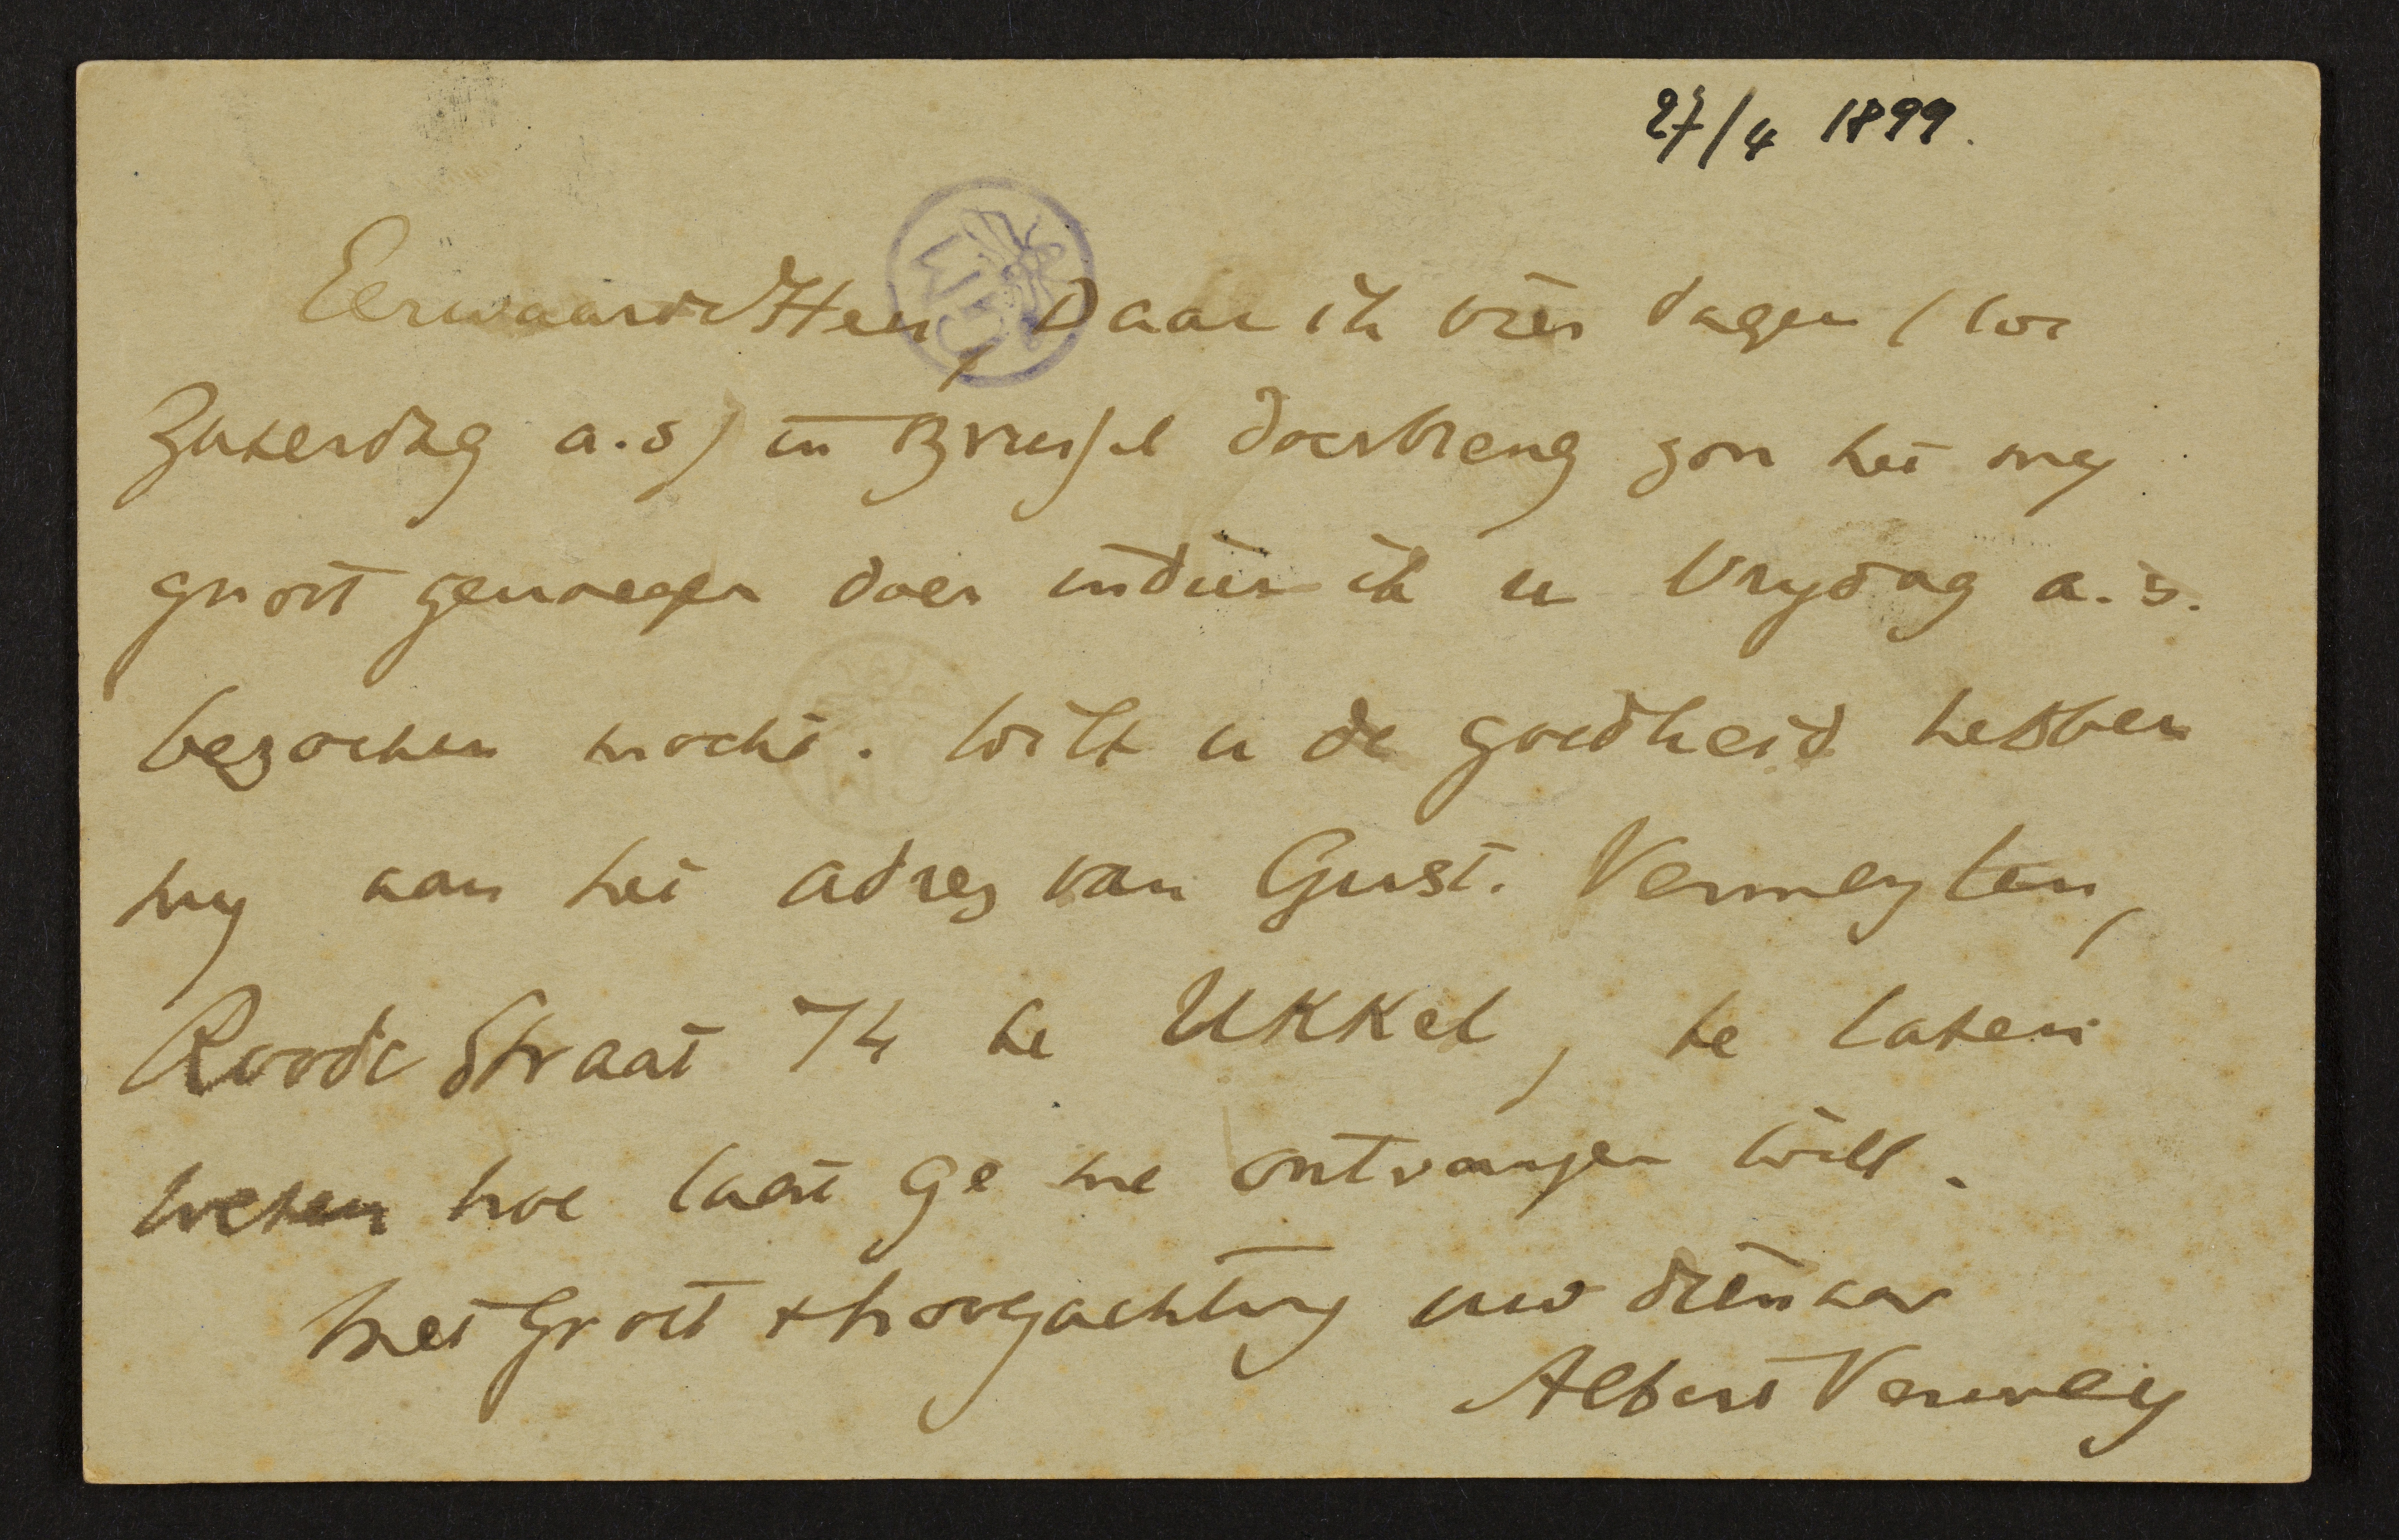 27/4 1899.
Eerwaarde Heer, Daar ik vier dagen (tot
Zaterdag a.s) in Brussel doorbreng zou het my
groot genoegen doen indien ik u Vrydag a.s.
bezoeken mocht. Wilt u de goedheid hebben
my aan het adres van Gust. Vermeylen,
Roode Straat 74 te Ukkel, te laten
weten hoe laat ge me ontvangen wilt.
Met groet & hoogachting uw dienaar
Albert Verwey